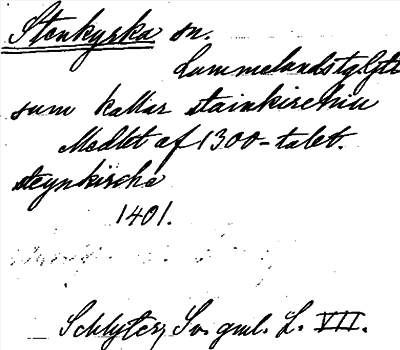 Stenkyrka sn.
Lummelandstg. Gtl
sum kallar stainkirchiu
Medlet af 1300-talet.
steynkirche
1401.
Schlyter, Sv. gml. L. VII.